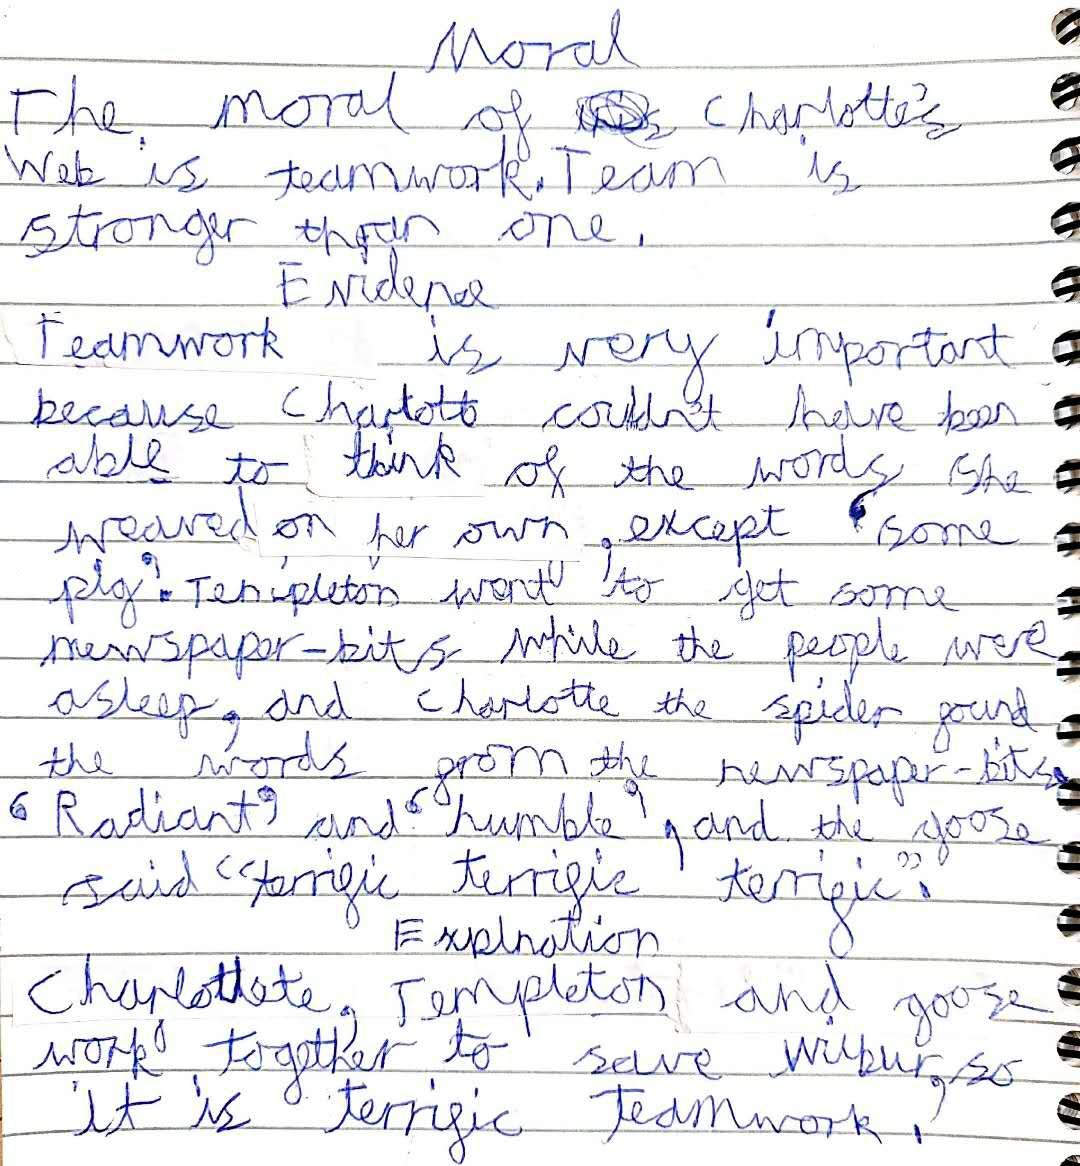 Moral
The moral of Charlotte's
Web is teamwork. Team is
stronger than one.
Evidence
Teamwork is very important
because Charlott couldn't have been
able to think of the words she
weaved on her own, except 'some
pig'. Templeton went to get some
newspaper-bits while the people were
asleep, and Charlotte the spider found
the words from the newspaper-bits,
'Radiant' and 'humble', and the goose
said "terrific terrific terrific".
Explnation
Charlottete, Templeton and goose
work together to save Wilbur, so
it is terrific teamwork.